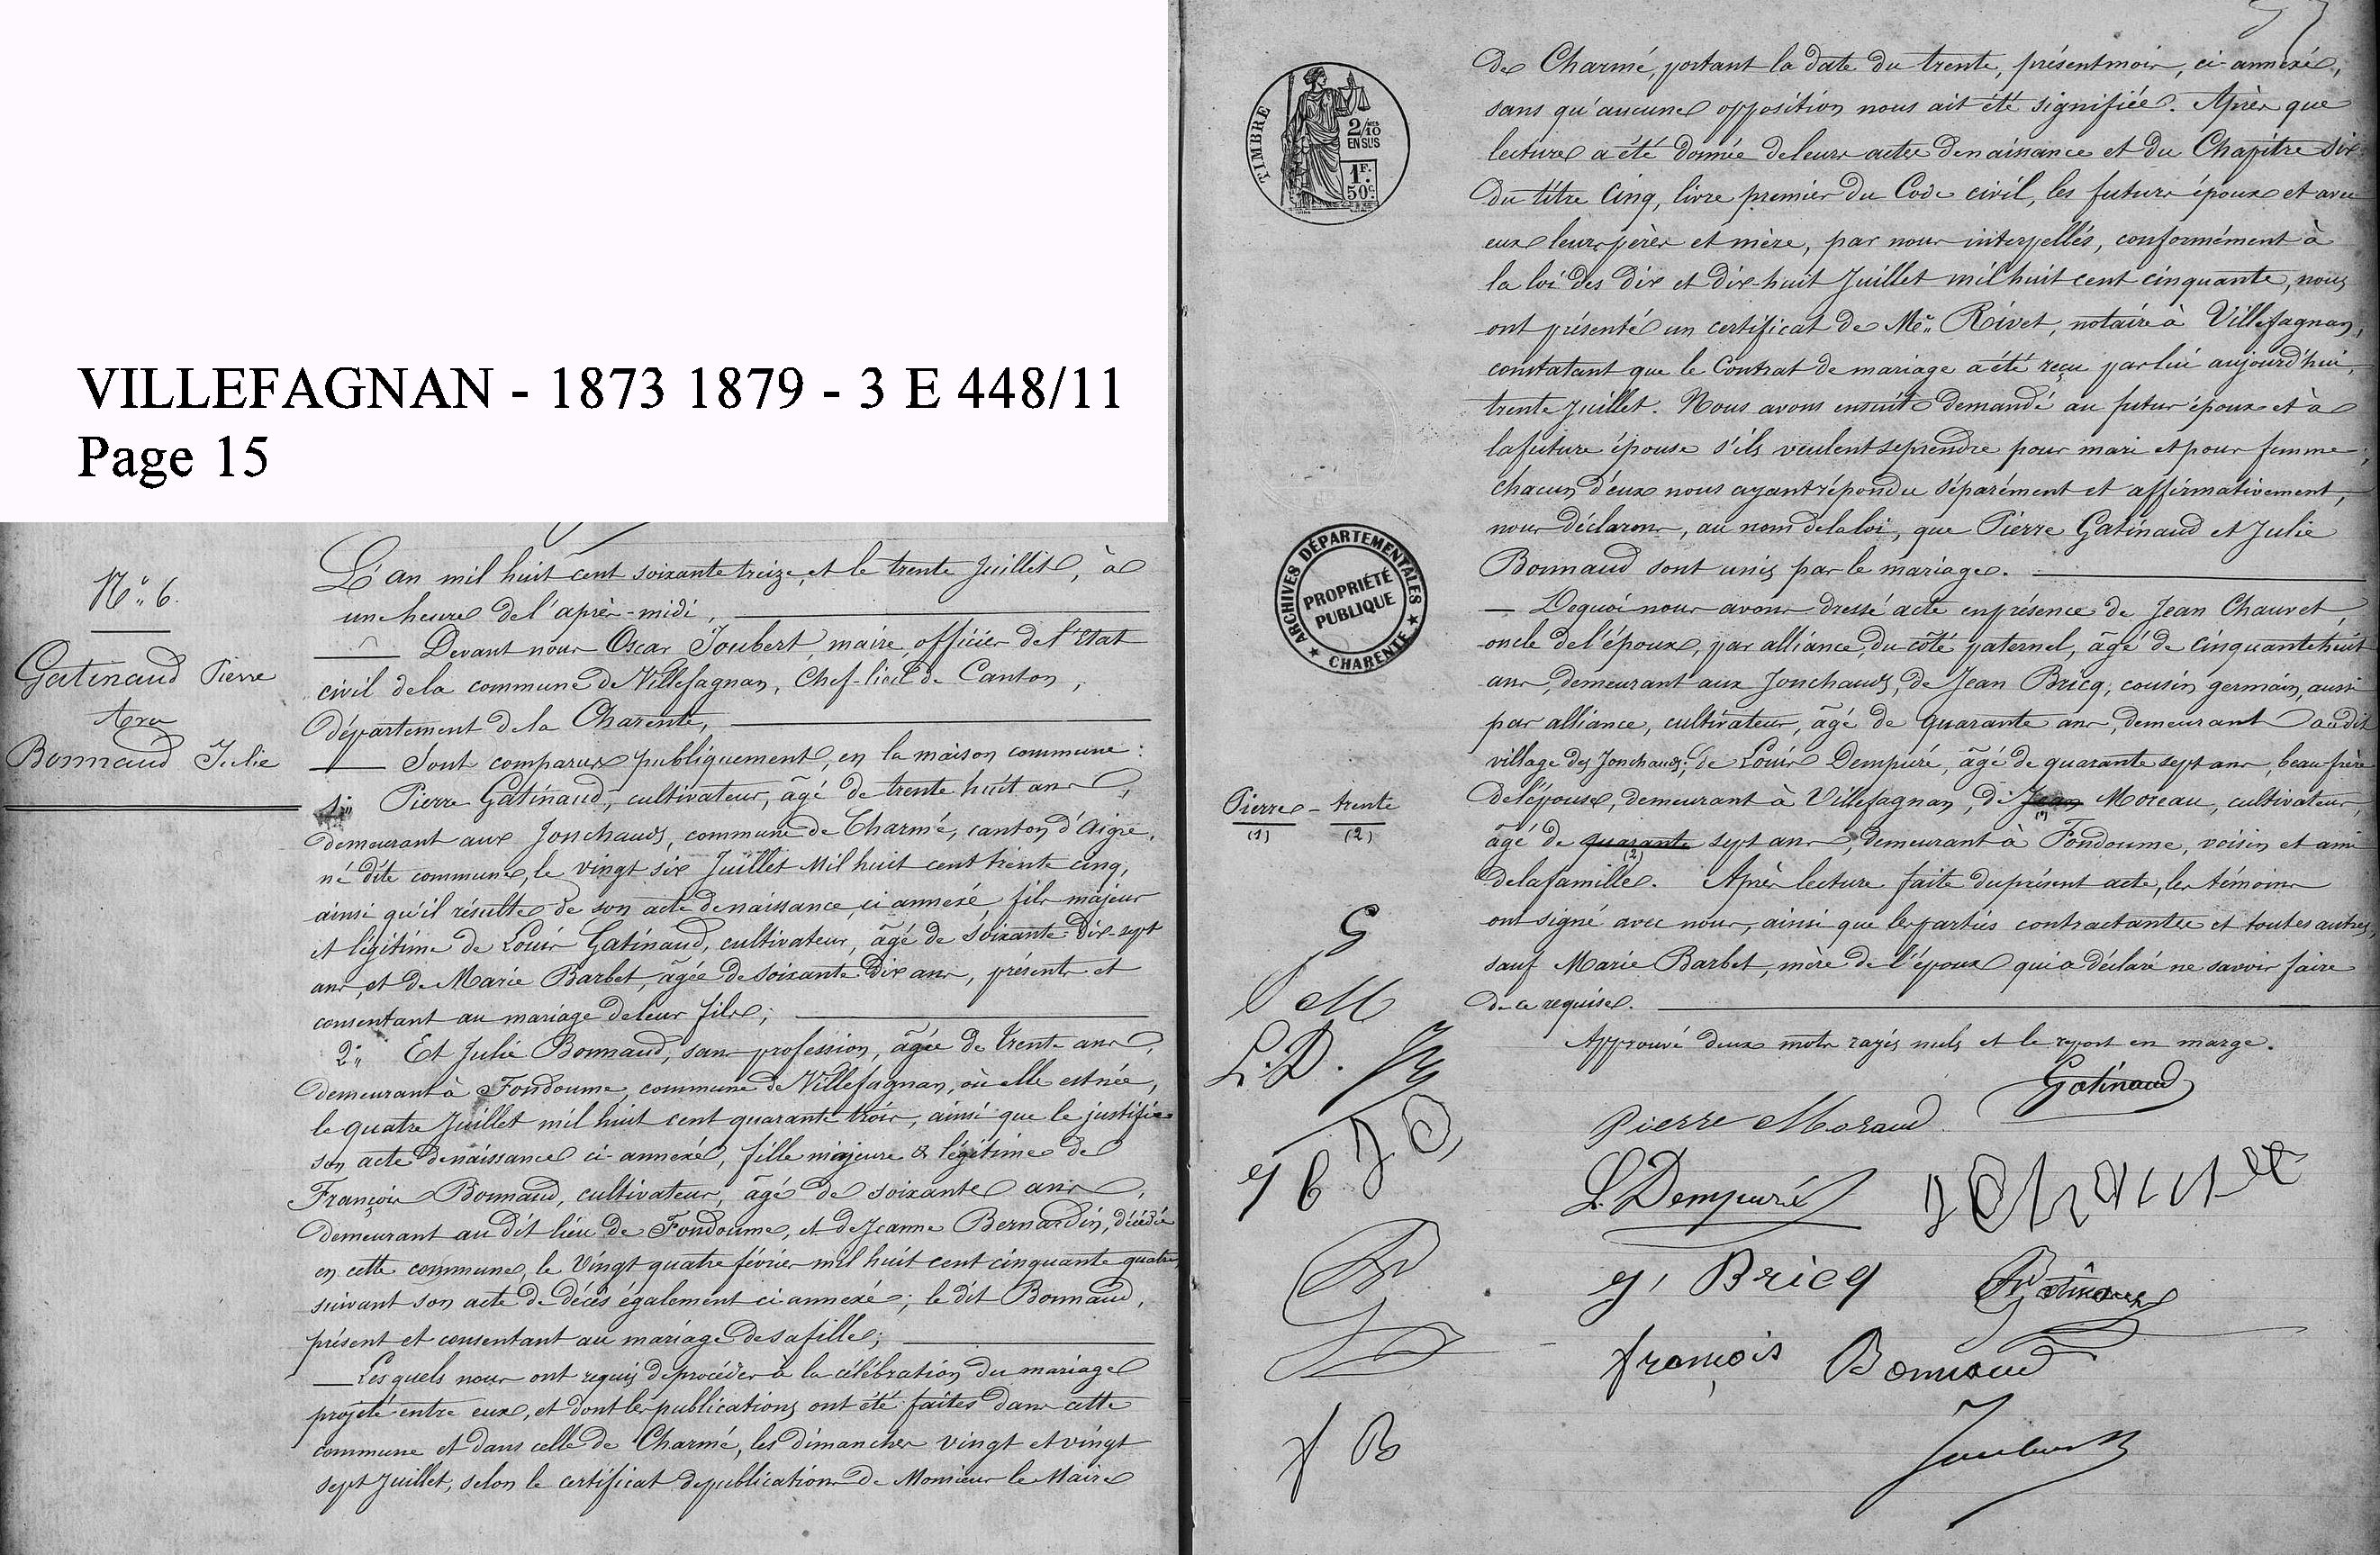 VILLEFAGNAN - 1873 1879 - 3 E 448/11
Page 15
N°. 6.
Gatinaud Pierre
avec
Bonnaud Julie
L'an mil huit cent soixante treize, et le trente Juillet, à
une heure de l'après-midi,
Devant nous Oscar Joubert, maire, officier de l'Etat
civil de la commune de Villefagnan, Chef-lieu de Canton,
département de la Charente,
Sont comparus publiquement, en la maison commune :
1° Pierre Gatinaud, cultivateur, âgé de trente huit ans,
demeurant aux Jonchauds, commune de Charmé, canton d'Aigre,
né dite commune, le vingt six Juillet mil huit cent trente cinq,
ainsi qu'il résulte de son acte de naissance, ci annexé, fils majeur
et légitime de Louis Gatinaud, cultivateur, âgé de soixante dix-sept
ans, et de Marie Barbet, âgée de soixante dix ans, présents et
consentant au mariage de leur fils ;
2° Et Julie Bonnaud, sans profession, âgée de trente ans,
demeurant à Fondoume, commune de Villefagnan, où elle est née,
le quatre Juillet mil huit cent quarante trois, ainsi que le justifie
son acte de naissance ci-annexé, fille majeure & légitime de
François Bonnaud, cultivateur, âgé de soixante ans,
demeurant au dit lieu de Fondoume, et de Jeanne Bernardin, décédée
en cette commune, le vingt quatre février mil huit cent cinquante quatre,
suivant son acte de décès également ci annexé ; le dit Bonnaud,
présent et consentant au mariage de sa fille ;
Lesquels nous ont requis de procéder à la célébration du mariage
projeté entre eux, et dont les publications ont été faites dans cette
commune et dans celle de Charmé, les dimanches vingt et vingt
sept Juillet, selon le certificat de publications de Monsieur le Maire
TIMBRE
2/10
EN SUS
1F.
50c.
de Charmé, portant la date du trente, présent mois, ci-annexé,
sans qu'aucune opposition nous ait été signifiée. Après que
lecture a été donnée de leurs actes de naissance et du Chapitre six
du titre Cinq, livre premier du Code civil, les futurs époux et avec
eux leurs pères et mère, par nous interpellés, conformément à
la loi des dix et dix-huit Juillet mil huit cent cinquante, nous
ont présenté un certificat de Me. Rivet, notaire à Villefagnan,
constatant que le Contrat de mariage a été reçu par lui aujourd'hui,
trente Juillet. Nous avons ensuite demandé au futur époux et à
la future épouse s'ils veulent se prendre pour mari et pour femme ;
chacun d'eux nous ayant répondu séparément et affirmativement,
nous déclarons, au nom de la loi, que Pierre Gatinaud et Julie
Bonnaud sont unis par le mariage.
De quoi nous avons dressé acte en présence de Jean Chauvet,
oncle de l'époux, par alliance, du côté paternel, âgé de cinquante huit
ans, demeurant aux Jonchauds, de Jean Bricq, cousin germain, aussi
par alliance, cultivateur, âgé de quarante ans, demeurant audit
village des Jonchauds, de Louis Dempuré, âgé de quarante sept ans, beau frère
de l'épouse, demeurant à Villefagnan, de Jean (1) Moreau, cultivateur,
âgé de quarante (2) sept ans, demeurant à Fondoume, voisin et ami
de la famille. Après lecture faite du présent acte, les témoins
ont signé avec nous, ainsi que les parties contractantes et toutes autres,
sauf Marie Barbet, mère de l'époux qui a déclaré ne savoir faire
de ce requise.
Approuvé deux mots rayés nuls et le report en marge.
ARCHIVES DÉPARTEMENTALES
PROPRIÉTÉ
PUBLIQUE
★ CHARENTE ★
Pierre - trente
(1) (2)
G
M
L. D.
B
Gatinaud
Pierre Moraud
L. Dempuré
j, Bricq
Gatinaud
françois Bonnaud
Joubert